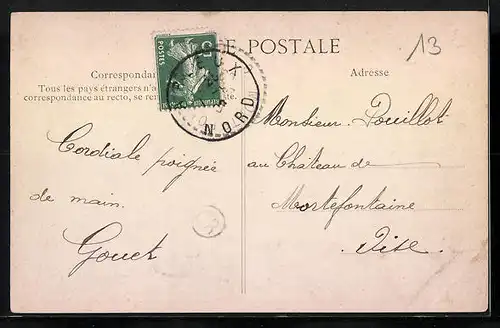 E POSTALE
13
Correspondan
Adresse
Tous les pays étrangers n'a
correspondance au recto, se re
POSTES
NORD
Cordiale poignée
de main.
Gouet
Monsieur Pouillot
au Château de
Mortefontaine
Oise